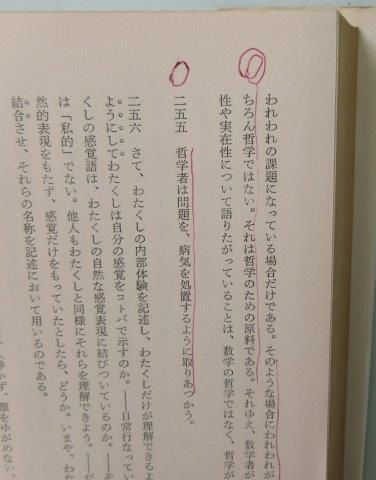 われわれの課題になっている場合だけである。そのような場合にわれわれが
ちろん哲学ではない。それは哲学のための原料である。それゆえ、数学者が
性や実在性について語りたがっていることは、数学の哲学ではなく、哲学が
二五五　哲学者は問題を、病気を処置するように取りあつかう。
二五六　さて、わたくしの内部体験を記述し、わたくしだけが理解できるよ
ようにしてわたくしは自分の感覚をコトバで示すのか。――日常行なってい
くしの感覚語は、わたくしの自然な感覚表現に結びついているのか。――そ
は「私的」でない。他人もわたくしと同様にそれらを理解できよう。――だ
然的表現をもたず、感覚だけをもっていたとしたら、どうか。いまや、わた
結合させ、それらの名称を記述において用いるのである。
かず、顔をゆがめない、